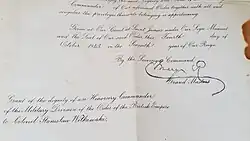 Commander of Our aforesaid Order together with all and
singular the privileges thereunto belonging or appertaining
Given at Our Court at Saint James's under Our Sign Manual
and the Seal of Our said Order this Fourth day of
October 1943 in the Seventh year of Our Reign
By the Sovereign's Command
Grand Master
Grant of the dignity of an Honorary Commander
of the Military Division of the Order of the British Empire
to Colonel Stanislaw Witkowski